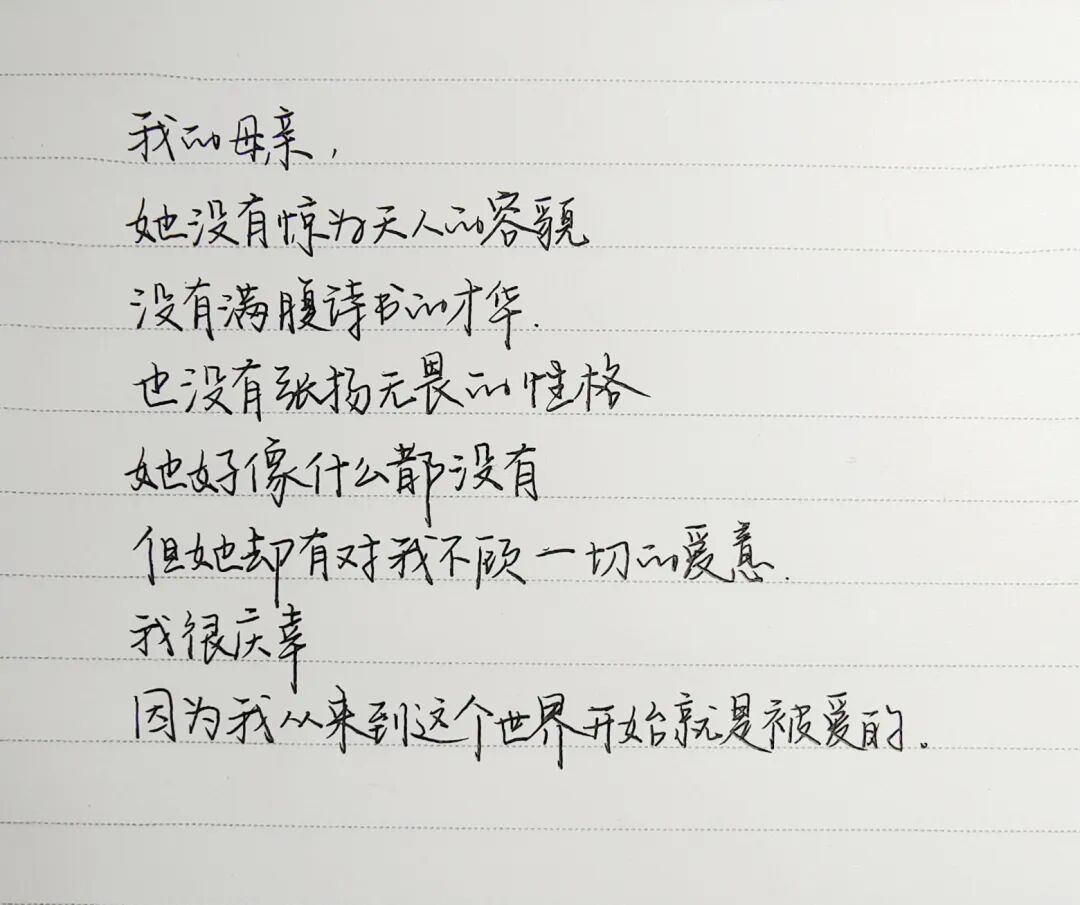 我的母亲,
她没有惊为天人的容貌
没有满腹诗书的才华.
也没有张扬无畏的性格
她好像什么都没有
但她却有对我不顾一切的爱意.
我很庆幸
因为我从来到这个世界开始就是被爱的.